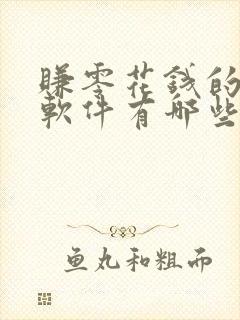 赚零花錢的
軟件有哪些
鱼丸和粗面